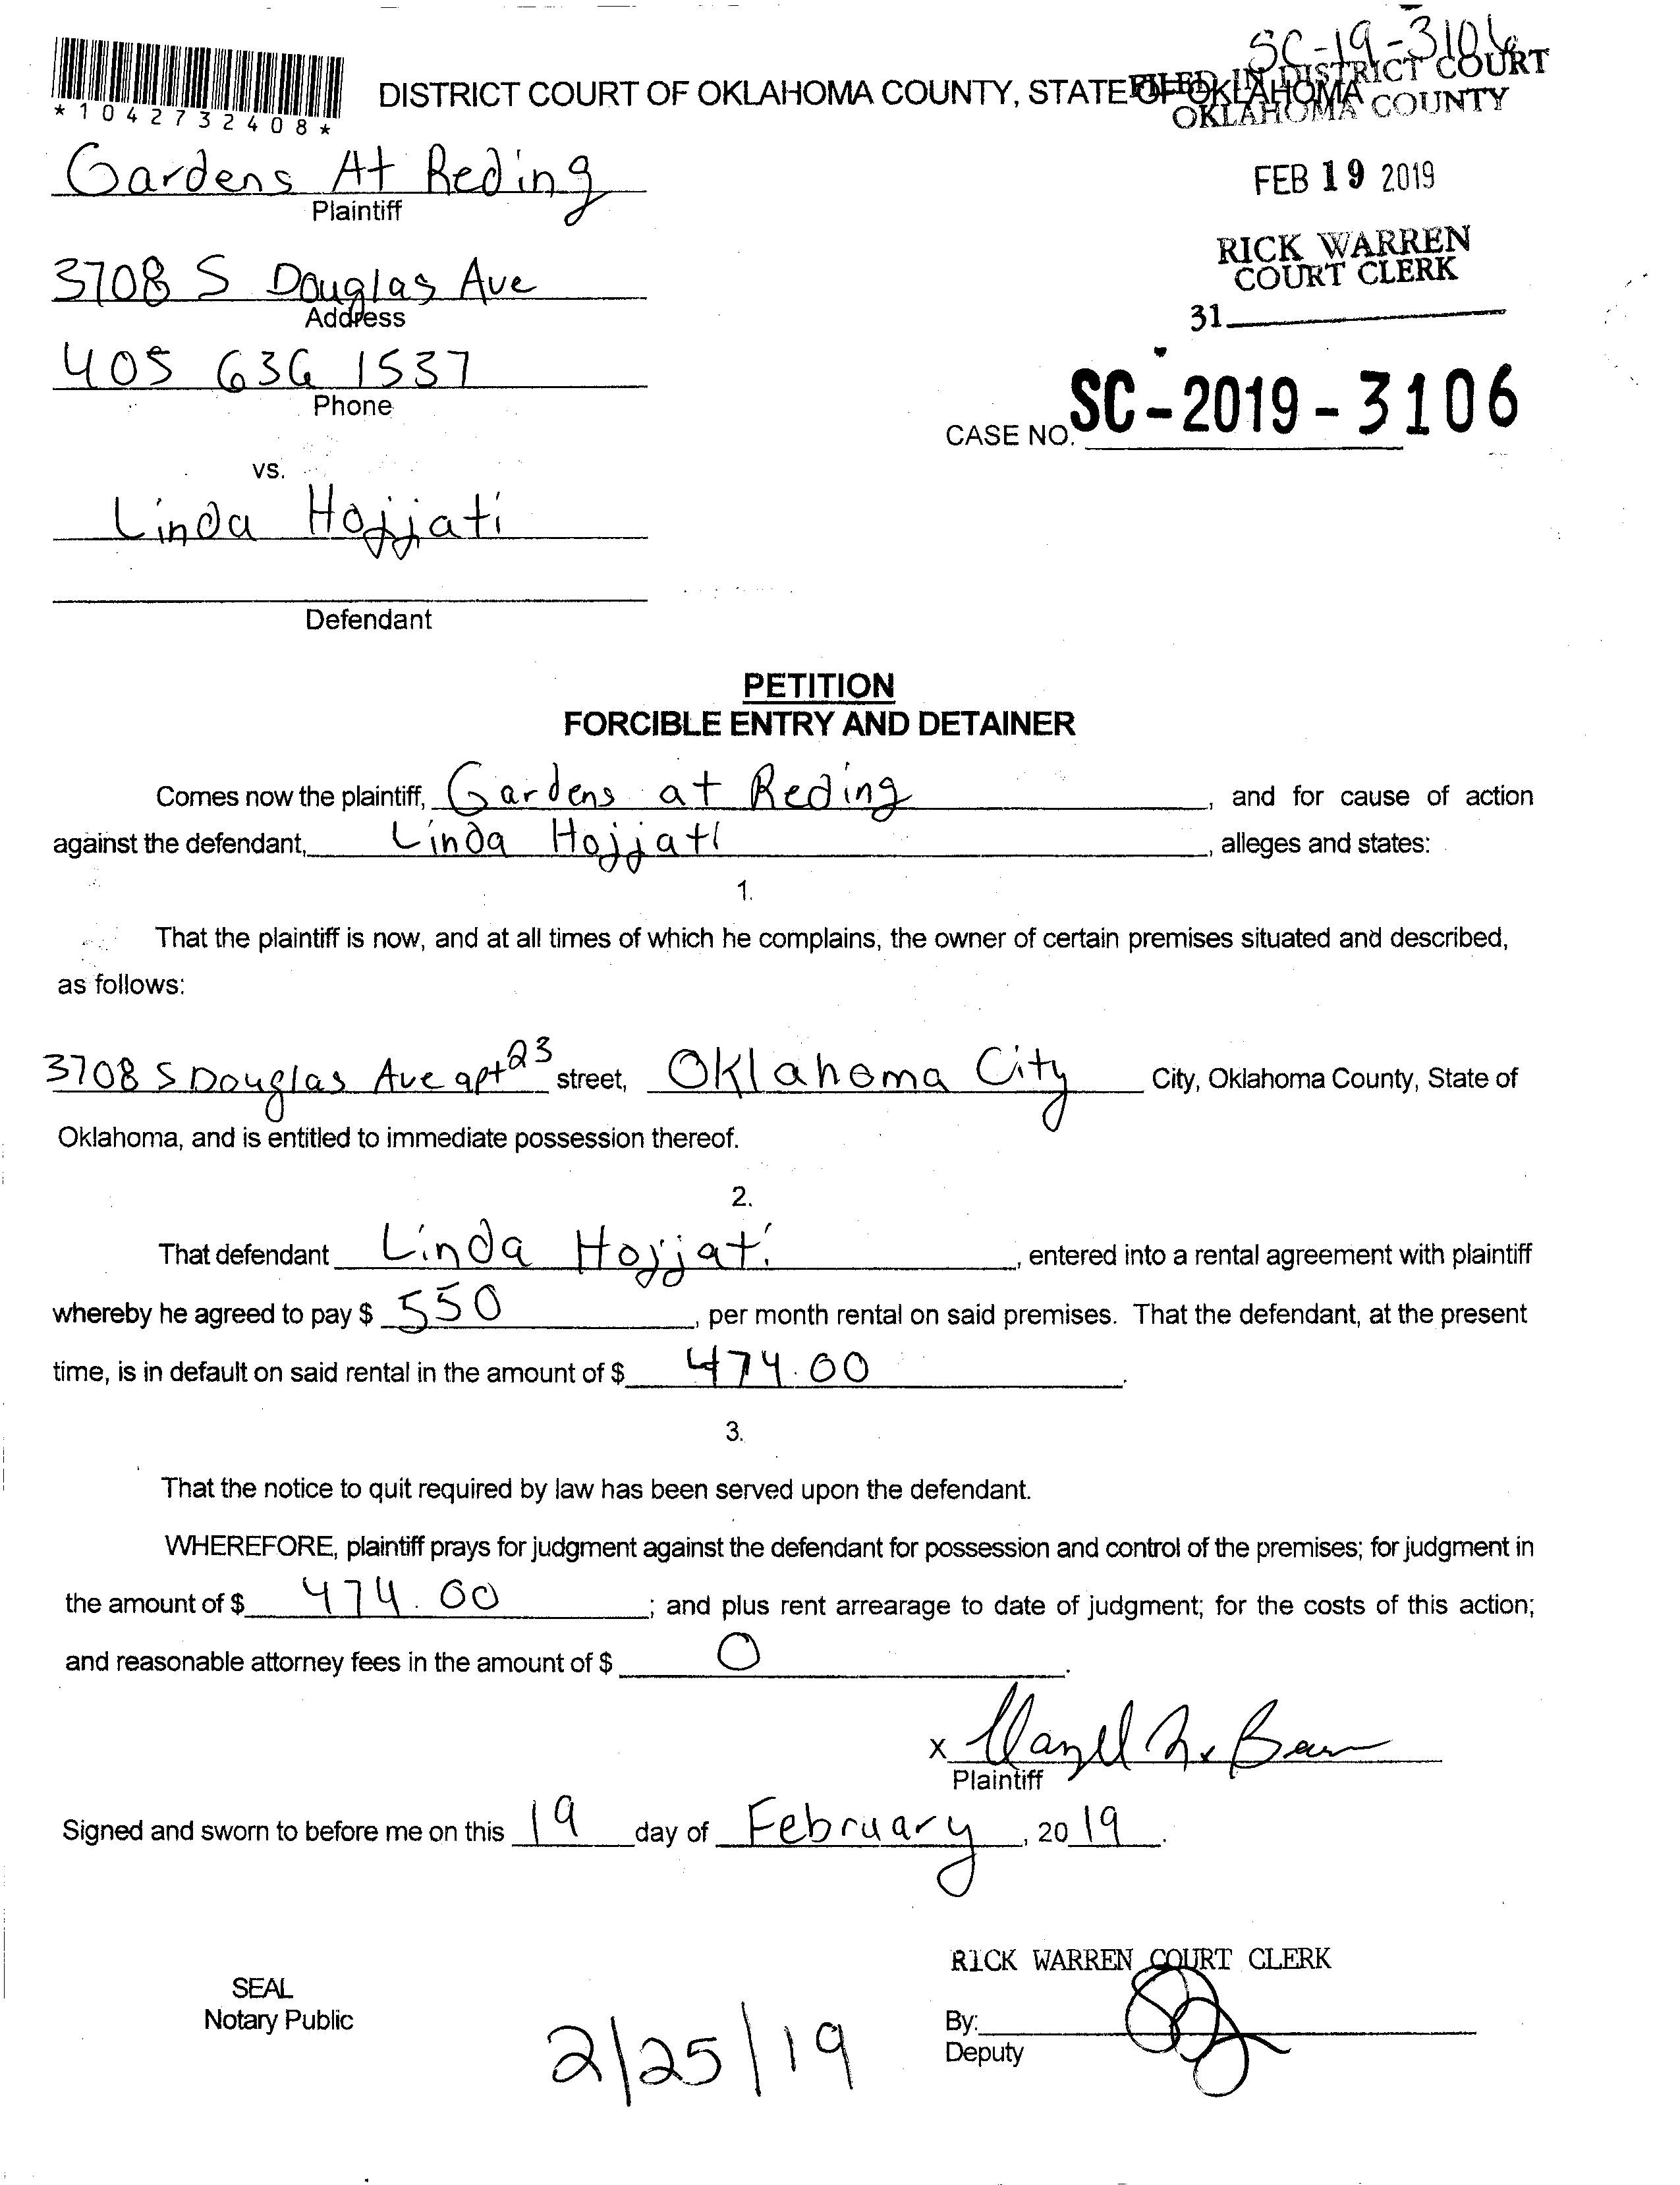 SC-19-3106
DISTRICT COURT OF OKLAHOMA COUNTY, STATE OF OKLAHOMA
FILED IN DISTRICT COURT
OKLAHOMA COUNTY
*1042732408*
Gardens At Reding
Plaintiff
FEB 19 2019
3708 S Douglas Ave
Address
RICK WARREN
COURT CLERK
31
405 636 1537
Phone
CASE NO. SC-2019-3106
vs.
Linda Hojjati
Defendant
PETITION
FORCIBLE ENTRY AND DETAINER
Comes now the plaintiff, Gardens at Reding, and for cause of action
against the defendant, Linda Hojjati, alleges and states:
1.
That the plaintiff is now, and at all times of which he complains, the owner of certain premises situated and described,
as follows:
3708 S Douglas Ave apt 23 street, Oklahoma City City, Oklahoma County, State of
Oklahoma, and is entitled to immediate possession thereof.
2.
That defendant Linda Hojjati, entered into a rental agreement with plaintiff
whereby he agreed to pay $ 550, per month rental on said premises. That the defendant, at the present
time, is in default on said rental in the amount of $ 474.00.
3.
That the notice to quit required by law has been served upon the defendant.
WHEREFORE, plaintiff prays for judgment against the defendant for possession and control of the premises; for judgment in
the amount of $ 474.00; and plus rent arrearage to date of judgment; for the costs of this action;
and reasonable attorney fees in the amount of $ 0.
x
Plaintiff
Signed and sworn to before me on this 19 day of February, 2019.
RICK WARREN COURT CLERK
SEAL
Notary Public
By:
Deputy
2/25/19